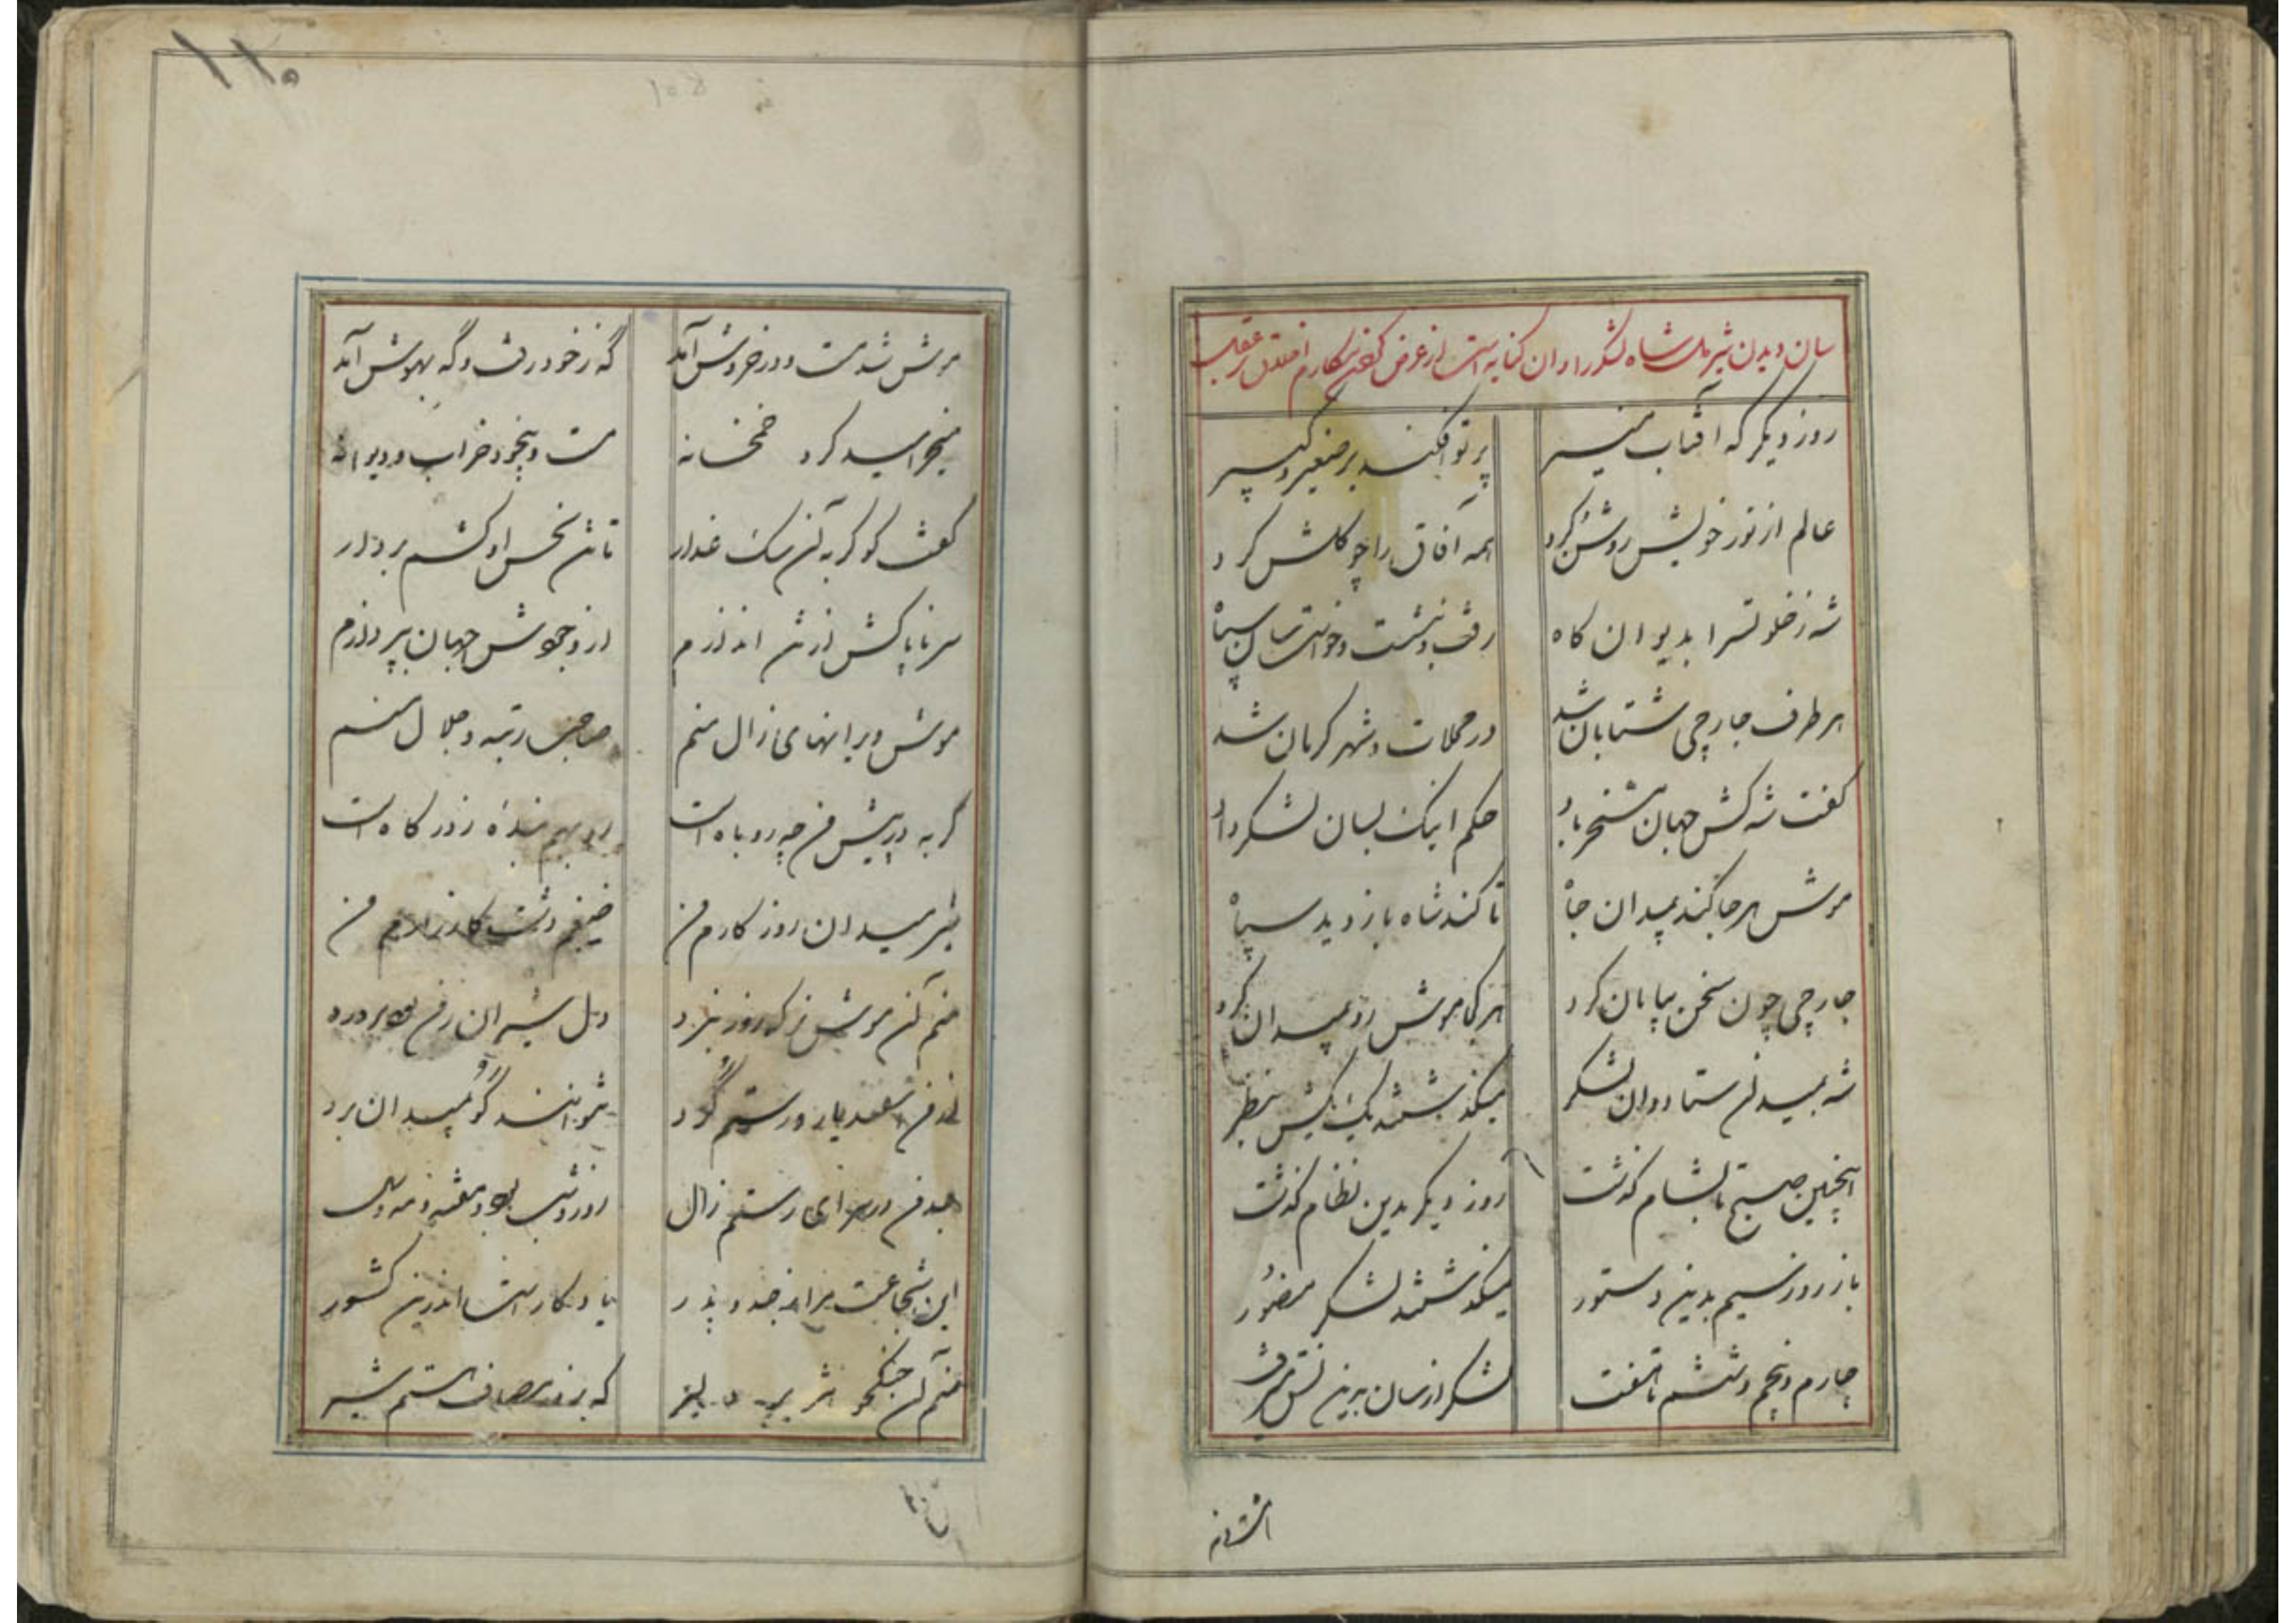 سان دیدن شیر ملک شاه لشکر را و آن کنایه است از عرض
روز دیگر که آفتاب منیر پرتو افکند بر صغیر و کبیر
عالم از نور خویش روشن کرد همه آفاق را چو گلشن کرد
شه ز خلوتسرا بدیوان گاه رفت و بنشست و خواست سان سپاه
هر طرف جارچی شتابان شد در محلات و شهر کرمان شد
گفت شه کش جهان مسخر باد حکم اینک بسان لشکر داد
موش هرجا کند بمیدان جا تا کند شاه بازدید سپاه
جارچی چون سخن بپایان کرد هر کجا موش رو بمیدان کرد
شه بمیدان ستاد و آن لشکر میگذشتند یک بیک ز نظر
اینچنین صبح تا بشام گذشت روز دیگر بدین نظام گذشت
باز روز سیم بدین دستور میگذشتند لشکر
چارم و پنجم و ششم تا هفت لشکر از سان برین نسق میرفت
۱۱۰
موش شد مست و در خروش آمد گه ز خود رفت و گه بهوش آمد
میخرامید گرد خمخانه مست و بیخود خراب و دیوانه
گفت کو گربه آن سگ غدار تا تن نحس او کشم بر دار
سر ناپاکش از تن اندازم از وجودش جهان بپردازم
موش ویرانهای زال منم صاحب رتبه و جلال منم
گربه در پیش من چه روباه است بنده درگاه است
شیر میدان روز کارم من ضیغم دشت کارزارم من
منم آن موش نر که روز نبرد دل شیران ز من بود پر درد
از من اسفندیار و رستم گرد نتوانند گو ز میدان برد
جد من در سرای رستم زال روز و شب بود
این شجاعت مرا ز جد و پدر یادگار است اندرین کشور
منم آن جنگجو هژبر دلیر که بروز مصاف هستم شیر